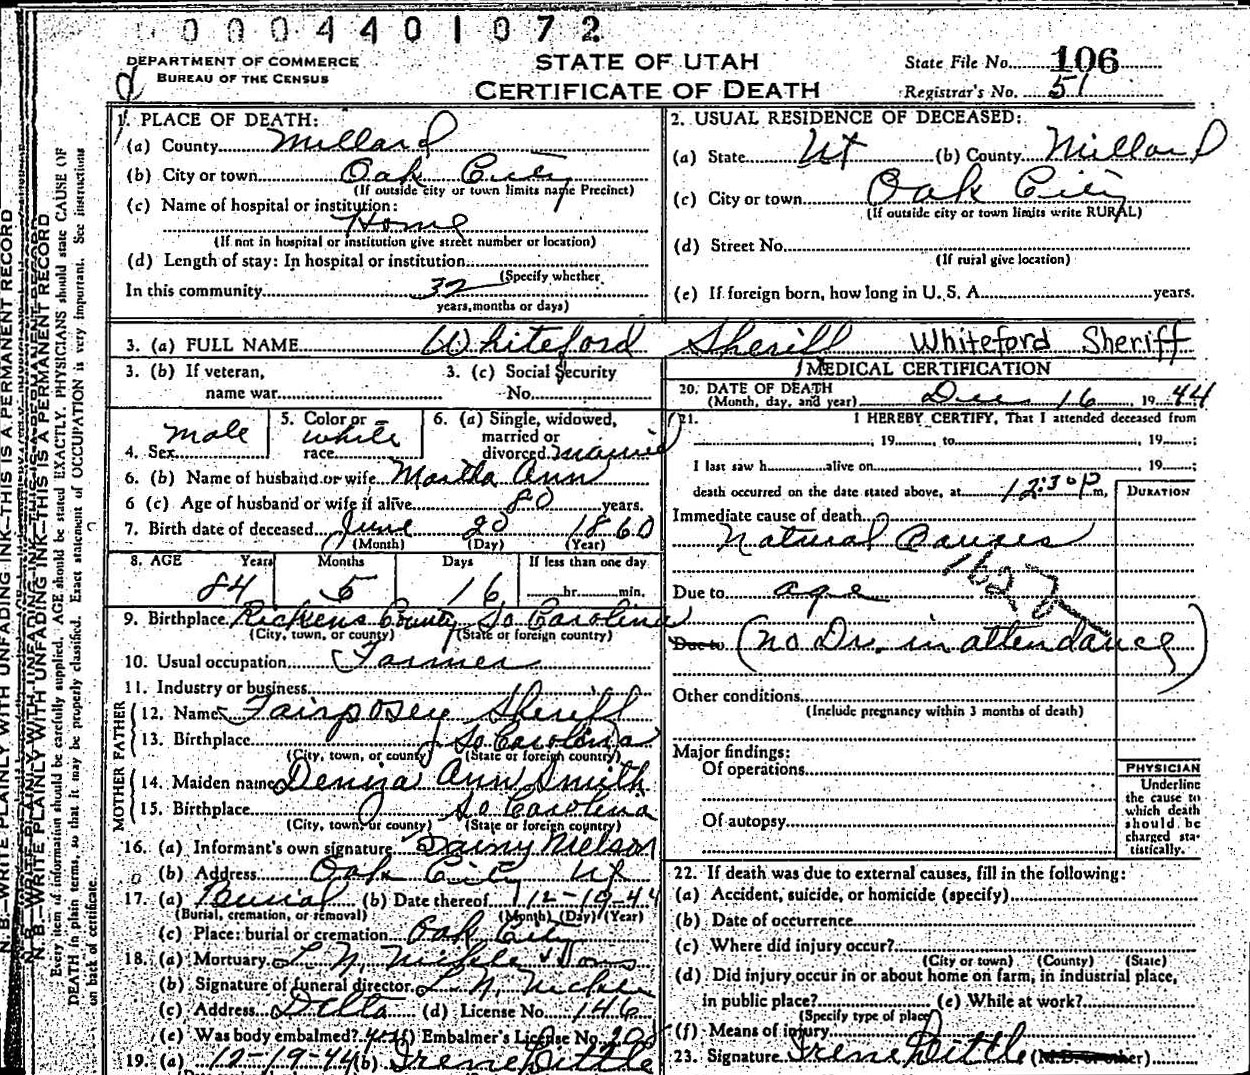 00004401072
DEPARTMENT OF COMMERCE
BUREAU OF THE CENSUS
STATE OF UTAH
CERTIFICATE OF DEATH
State File No. 106
Registrar's No. 51
N. B.—WRITE PLAINLY WITH UNFADING INK—THIS IS A PERMANENT RECORD
N. B.—WRITE PLAINLY WITH UNFADING INK—THIS IS A PERMANENT RECORD
Every item of information should be carefully supplied. AGE should be stated EXACTLY. PHYSICIANS should state CAUSE OF
DEATH in plain terms, so that it may be properly classified. Exact statement of OCCUPATION is very important. See instructions
on back of certificate.
1. PLACE OF DEATH:
(a) County Millard
(b) City or town Oak City
(If outside city or town limits name Precinct)
(c) Name of hospital or institution:
Home
(If not in hospital or institution give street number or location)
(d) Length of stay: In hospital or institution
(Specify whether
In this community 32
years, months or days)
2. USUAL RESIDENCE OF DECEASED:
(a) State Ut (b) County Millard
(c) City or town Oak City
(If outside city or town limits write RURAL)
(d) Street No.
(If rural give location)
(e) If foreign born, how long in U. S. A. years.
3. (a) FULL NAME Whiteford Sheriff Whiteford Sheriff
3. (b) If veteran, 3. (c) Social Security
name war No.
4. Sex male 5. Color or race white 6. (a) Single, widowed, married or divorced married
6. (b) Name of husband or wife Martha Ann
6 (c) Age of husband or wife if alive 80 years.
7. Birth date of deceased June 20 1860
(Month) (Day) (Year)
8. AGE Years Months Days If less than one day
84 5 16 hr. min.
9. Birthplace Pickens County So Carolina
(City, town, or county) (State or foreign country)
10. Usual occupation Farmer
11. Industry or business
FATHER
12. Name Fairposey Sheriff
13. Birthplace So Carolina
(City, town, or county) (State or foreign country)
MOTHER
14. Maiden name Ann Smith
15. Birthplace So Carolina
(City, town, or county) (State or foreign country)
16. (a) Informant's own signature Nelson
(b) Address Oak City Ut
17. (a) Burial (b) Date thereof 12-19-44
(Burial, cremation, or removal) (Month) (Day) (Year)
(c) Place: burial or cremation Oak City
18. (a) Mortuary L. N. & Sons
(b) Signature of funeral director L. N.
(c) Address Delta (d) License No. 146
(e) Was body embalmed? yes (f) Embalmer's License No.
19. (a) 12-19-44 (b) Irene Dittle
MEDICAL CERTIFICATION
20. DATE OF DEATH
(Month, day, and year) Dec 16 1944
21. I HEREBY CERTIFY, That I attended deceased from
, 19 , to , 19 ;
I last saw h alive on , 19 ;
death occurred on the date stated above, at 12:30 P m. DURATION
Immediate cause of death
Natural Causes
162
Due to age
Due to (no Dr. in attendance)
Other conditions
(Include pregnancy within 3 months of death)
Major findings:
Of operations
Of autopsy
PHYSICIAN
Underline
the cause to
which death
should be
charged sta-
tistically.
22. If death was due to external causes, fill in the following:
(a) Accident, suicide, or homicide (specify)
(b) Date of occurrence
(c) Where did injury occur?
(City or town) (County) (State)
(d) Did injury occur in or about home on farm, in industrial place,
in public place? (e) While at work?
(Specify type of place)
(f) Means of injury
23. Signature Irene Dittle (M.D. or other)